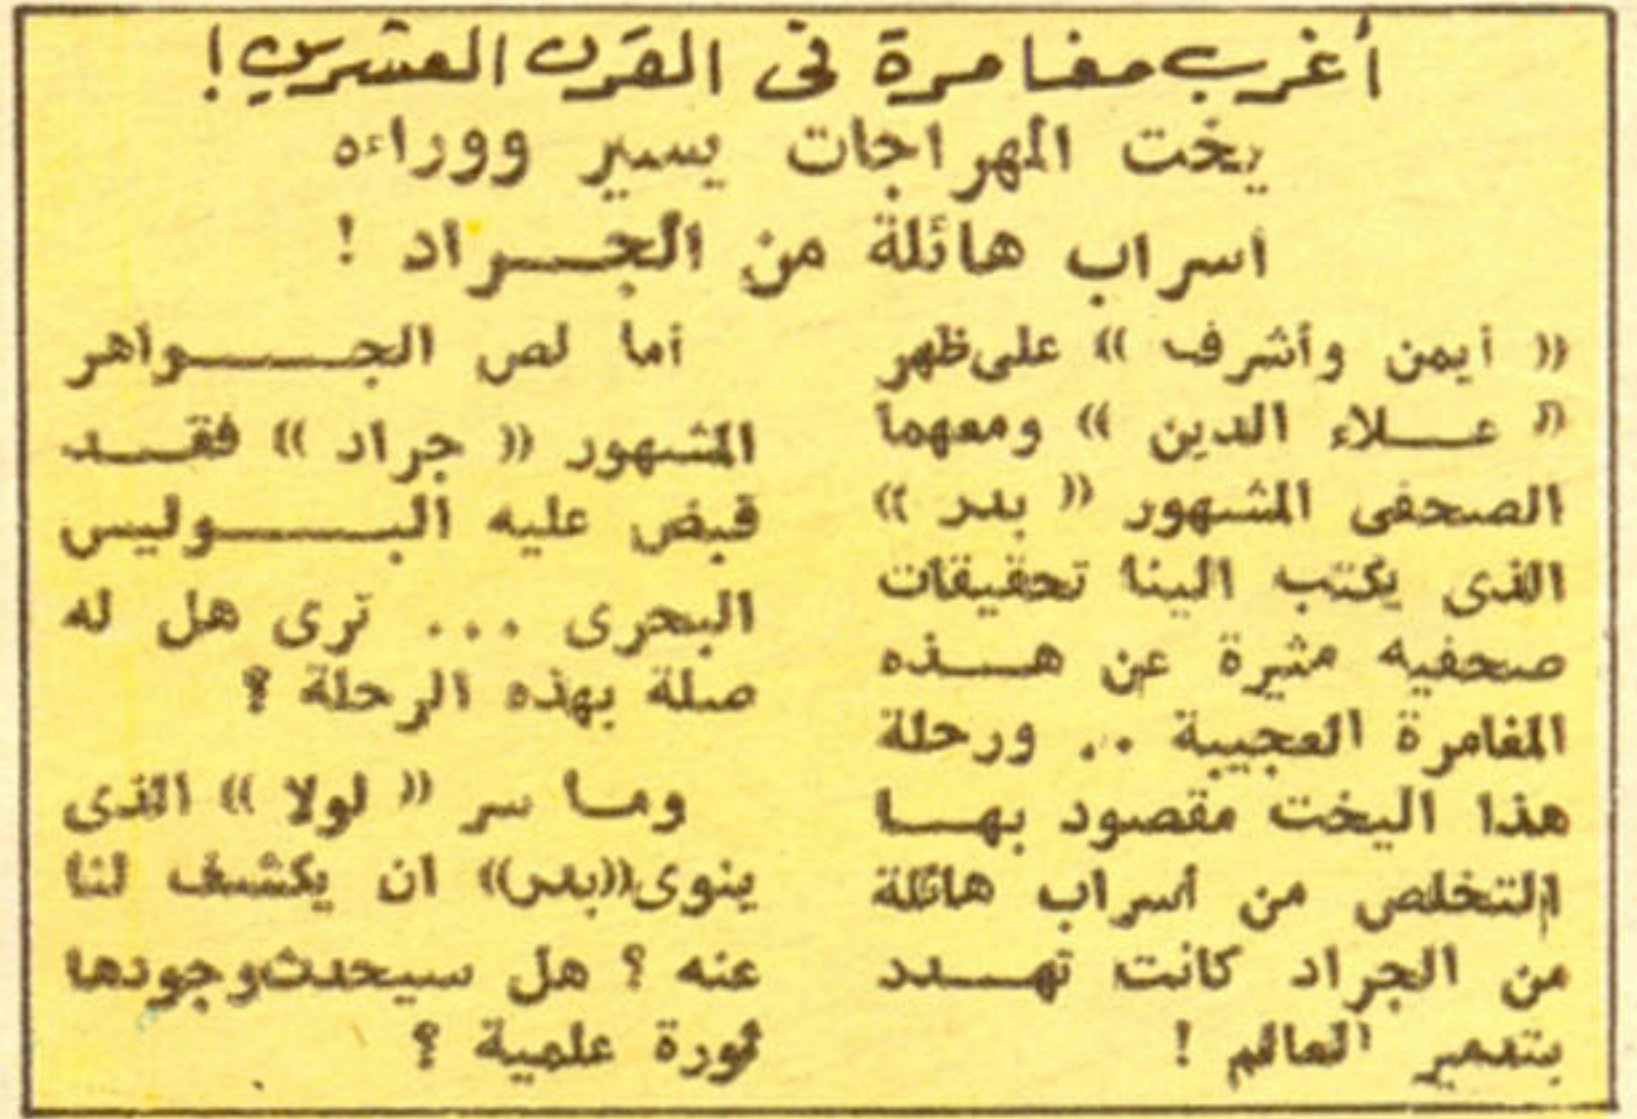 أغرب مغامرة فى القرن العشرين !
يخت المهراجات يسير ووراءه
اسراب هائلة من الجـــراد !
« أيمن وأشرف » على ظهر
« عـــلاء الدين » ومعهما
الصحفى المشهور « بدر »
الذى يكتب الينا تحقيقات
صحفيه مثيرة عن هـــذه
المغامرة العجيبة .. ورحلة
هذا اليخت مقصود بهـــا
التخلص من أسراب هائلة
من الجراد كانت تهـــدد
بتدمير العالم !
أما لص الجـــواهر
المشهور « جراد » فقـــد
قبض عليه البـــوليس
البحرى ... ترى هل له
صلة بهذه الرحلة ؟
ومـا سر « لولا » الذى
ينوى «بدر» ان يكشف لنا
عنه ؟ هل سيحدث وجودها
ثورة علمية ؟